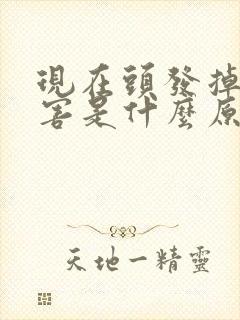 現在頭發掉
害是什麼原
天地一精靈